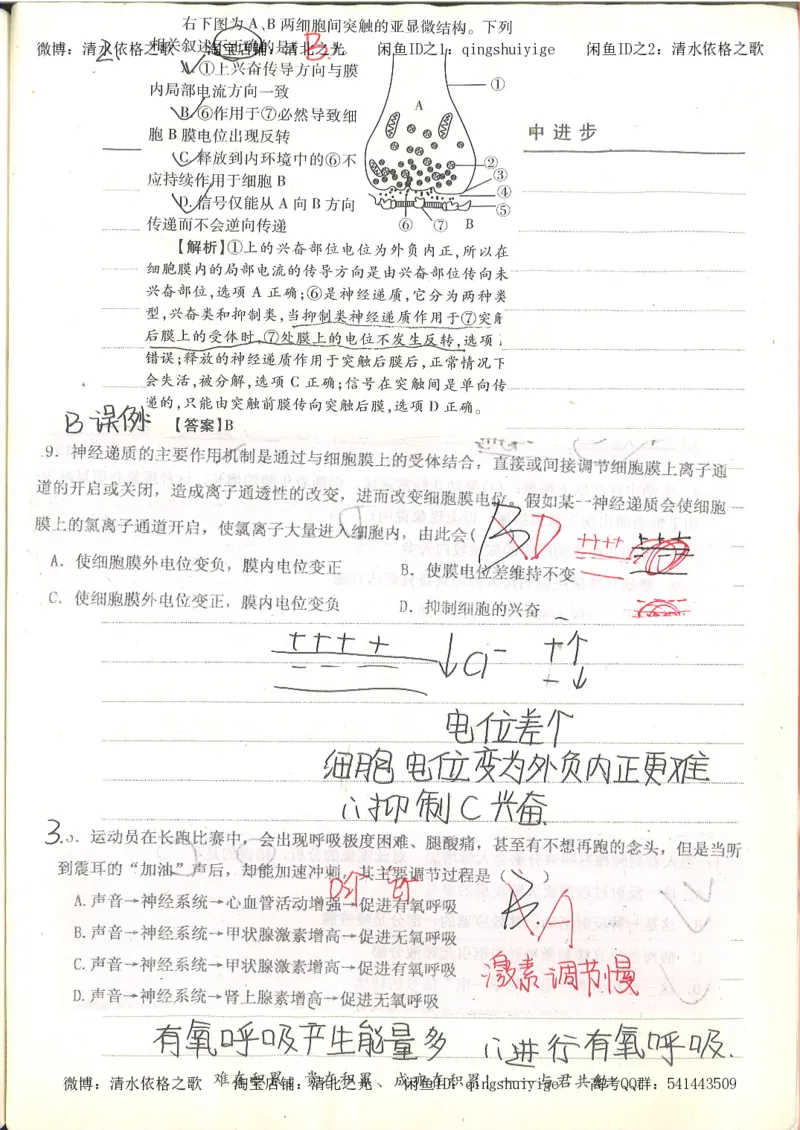 右下图为 A、B 两细胞间突触的亚显微结构。下列
微博：清水依格之歌 淘宝店铺：清北之光 闲鱼ID之1：qingshuiyige 闲鱼ID之2：清水依格之歌
2. 相关叙述不正确的是 B
A. ①上兴奋传导方向与膜
内局部电流方向一致
B. ⑥作用于⑦必然导致细
胞 B 膜电位出现反转
C. 释放到内环境中的⑥不
应持续作用于细胞 B
D. 信号仅能从 A 向 B 方向
传递而不会逆向传递
A
①
②
③
④
⑤
⑥ ⑦ B
中进步
【解析】①上的兴奋部位电位为外负内正，所以在
细胞膜内的局部电流的传导方向是由兴奋部位传向未
兴奋部位，选项 A 正确；⑥是神经递质，它分为两种类
型，兴奋类和抑制类，当抑制类神经递质作用于⑦突触
后膜上的受体时，⑦处膜上的电位不发生反转，选项
错误；释放的神经递质作用于突触后膜后，正常情况下
会失活，被分解，选项 C 正确；信号在突触间是单向传
递的，只能由突触前膜传向突触后膜，选项 D 正确。
B 误例 【答案】B
9. 神经递质的主要作用机制是通过与细胞膜上的受体结合，直接或间接调节细胞膜上离子通
道的开启或关闭，造成离子通透性的改变，进而改变细胞膜电位。假如某一神经递质会使细胞
膜上的氯离子通道开启，使氯离子大量进入细胞内，由此会( B D ++++ +++
A. 使细胞膜外电位变负，膜内电位变正 B. 使膜电位差维持不变
C. 使细胞膜外电位变正，膜内电位变负 D. 抑制细胞的兴奋
++++ ↓Cl⁻ +↑
- - - - -↓
电位差个
细胞电位变为外负内正更难
∴抑制C兴奋
3. 0. 运动员在长跑比赛中，会出现呼吸极度困难、腿酸痛，甚至有不想再跑的念头，但是当听
到震耳的“加油”声后，却能加速冲刺，其主要调节过程是（ ）
A. 声音→神经系统→心血管活动增强→促进有氧呼吸
B. A
B. 声音→神经系统→甲状腺激素增高→促进无氧呼吸
C. 声音→神经系统→甲状腺激素增高→促进有氧呼吸
激素调节慢
D. 声音→神经系统→肾上腺素增高→促进无氧呼吸
有氧呼吸产生能量多 ∴进行有氧呼吸.
难在积累、贵在积累、成功在积累! 与君共勉
微博：清水依格之歌 淘宝店铺：清北之光 闲鱼ID：qingshuiyige 高考QQ群：541443509